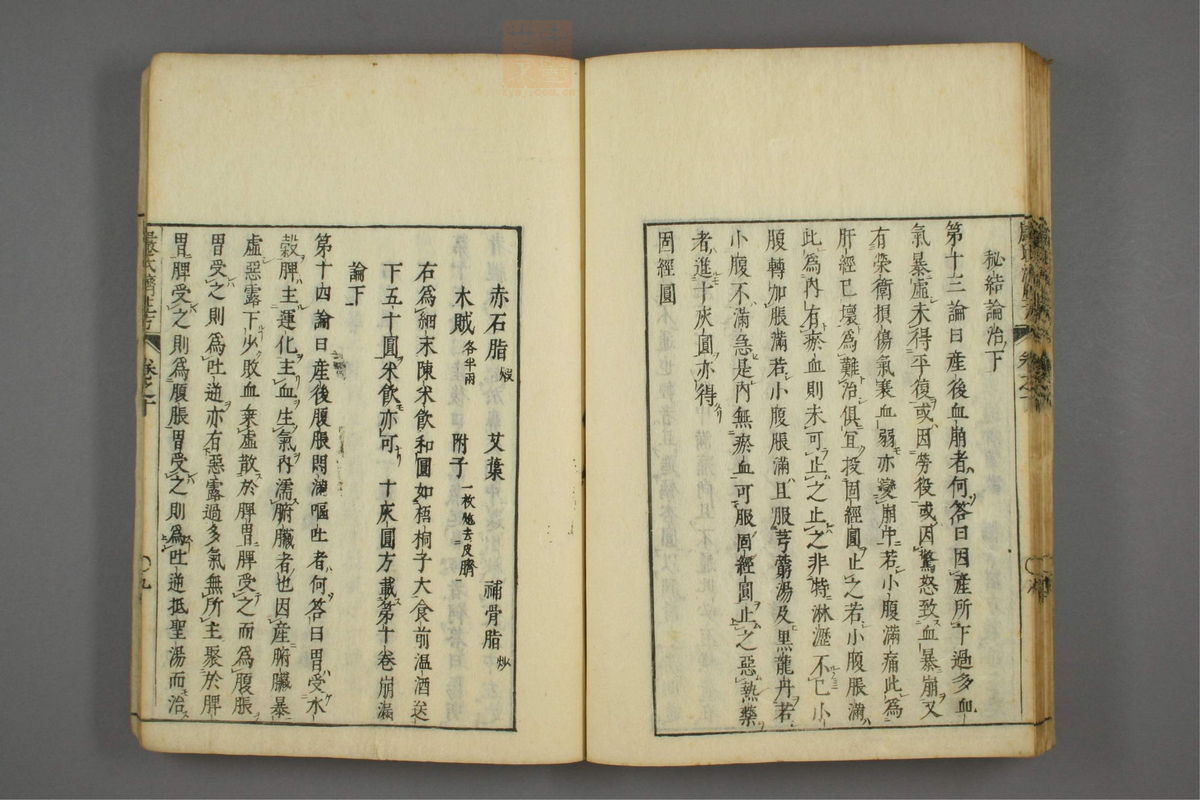 秘結論治下
第十三論曰産後血崩者何答曰因産所下過多血
氣暴虛未得平復或因勞役或因驚怒致血暴崩又
有榮衛損傷氣衰血弱亦變崩中若小腹滿痛此爲
肝經已壞爲難治俱宜投固經圓止之若小腹脹滿
此爲内有瘀血則未可止之止之非特淋瀝不已小
腹轉加脹滿若小腹脹滿且服芎藭湯及黒龍丹若
小腹不滿急是内無瘀血可服固經圓止之惡熱藥
者進十灰圓亦得
固經圓
赤石脂煅 艾葉 補骨脂炒
木賊各半兩 附子一枚炮去皮臍
右爲細末陳米飲和圓如梧桐子大食前温酒送
下五十圓米飲亦可 十灰圓方載第十卷崩漏
論下
第十四論曰産後腹脹悶滿嘔吐者何答曰胃受水
穀脾主運化主血生氣内濡腑臟者也因産腑臟暴
虛惡露下少敗血乗虛散於脾胃脾受之而爲腹脹
胃受之則爲吐逆亦有惡露過多氣無所主聚於脾
胃脾受之則爲腹脹胃受之則爲吐逆抵聖湯而治
嚴氏濟生方 卷之十 九